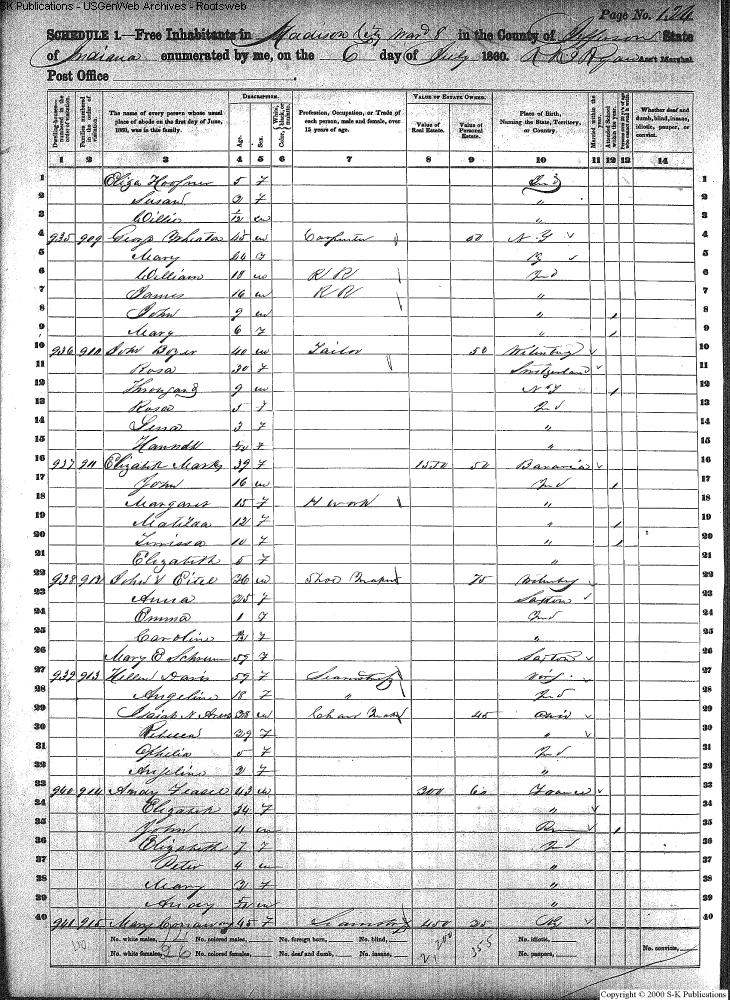 S-K Publications - USGenWeb Archives - Rootsweb
Page No. 124
SCHEDULE 1.—Free Inhabitants in Madison City Ward 8 in the County of Jefferson State
of Indiana enumerated by me, on the 6 day of July 1860. Ass't Marshal
Post Office
Dwelling-houses—numbered in the order of visitation.
Families numbered in the order of visitation.
The name of every person whose usual place of abode on the first day of June, 1860, was in this family.
DESCRIPTION.
Age.
Sex.
Color, White, black, or mulatto.
Profession, Occupation, or Trade of each person, male and female, over 15 years of age.
VALUE OF ESTATE OWNED.
Value of Real Estate.
Value of Personal Estate.
Place of Birth, Naming the State, Territory, or Country.
Married within the year.
Attended School within the year.
Persons over 20 years of age who cannot read & write.
Whether deaf and dumb, blind, insane, idiotic, pauper, or convict.
1 2 3 4 5 6 7 8 9 10 11 12 13 14
1 Eliza Hoofner 5 F Ind 1
2 Susan 2 F " 2
3 Willie m " 3
4 935 909 Wheaton 45 m Carpenter 50 N Y 4
5 Mary 44 F Ky 5
6 William 18 m R R Ind 6
7 James 16 m R R " 7
8 John 9 m " 1 8
9 Mary 6 F " 1 9
10 936 910 John Boyer 40 m Tailor 50 10
11 Rosa 30 F Switzerland 11
12 9 m N Y 1 12
13 Rosa 5 F Ind 13
14 Lena 3 F " 14
15 Hannah F " 15
16 937 911 Elizabeth Marks 39 F 1550 50 Bavaria 16
17 John 16 m Ind 1 17
18 Margaret 15 F H work " 18
19 Matilda 12 F " 1 19
20 10 F " 1 20
21 Elizabeth 5 F " 21
22 938 912 John Eitel 26 m Shoe Maker 75 22
23 Anna 25 F Saxton 23
24 Emma 1 F Ind 24
25 Caroline F " 25
26 Mary E 59 F Saxton 26
27 939 913 Hellen Davis 59 F Seamstress Virg. 27
28 Angeline 18 F " Ind 28
29 Isaiah N 28 m Chair Maker 45 Ohio 29
30 Rebecca 29 F " 30
31 Ophelia 5 F Ind 31
32 Angeline 3 F " 32
33 940 914 Andy 43 m 300 60 France 33
34 Elizabeth 34 F " 34
35 John 11 m 1 35
36 Elizabeth 7 F Ind 36
37 Peter 4 m " 37
38 Mary 3 F " 38
39 Andy m " 39
40 941 915 Mary Conaway 45 F Seamstress 400 25 Ky 40
No. white males, 14 No. colored males, No. foreign born, No. blind, No. idiotic, No. convicts,
No. white females, 26 No. colored females, No. deaf and dumb, No. insane, No. paupers,
355
Copyright © 2000 S-K Publications